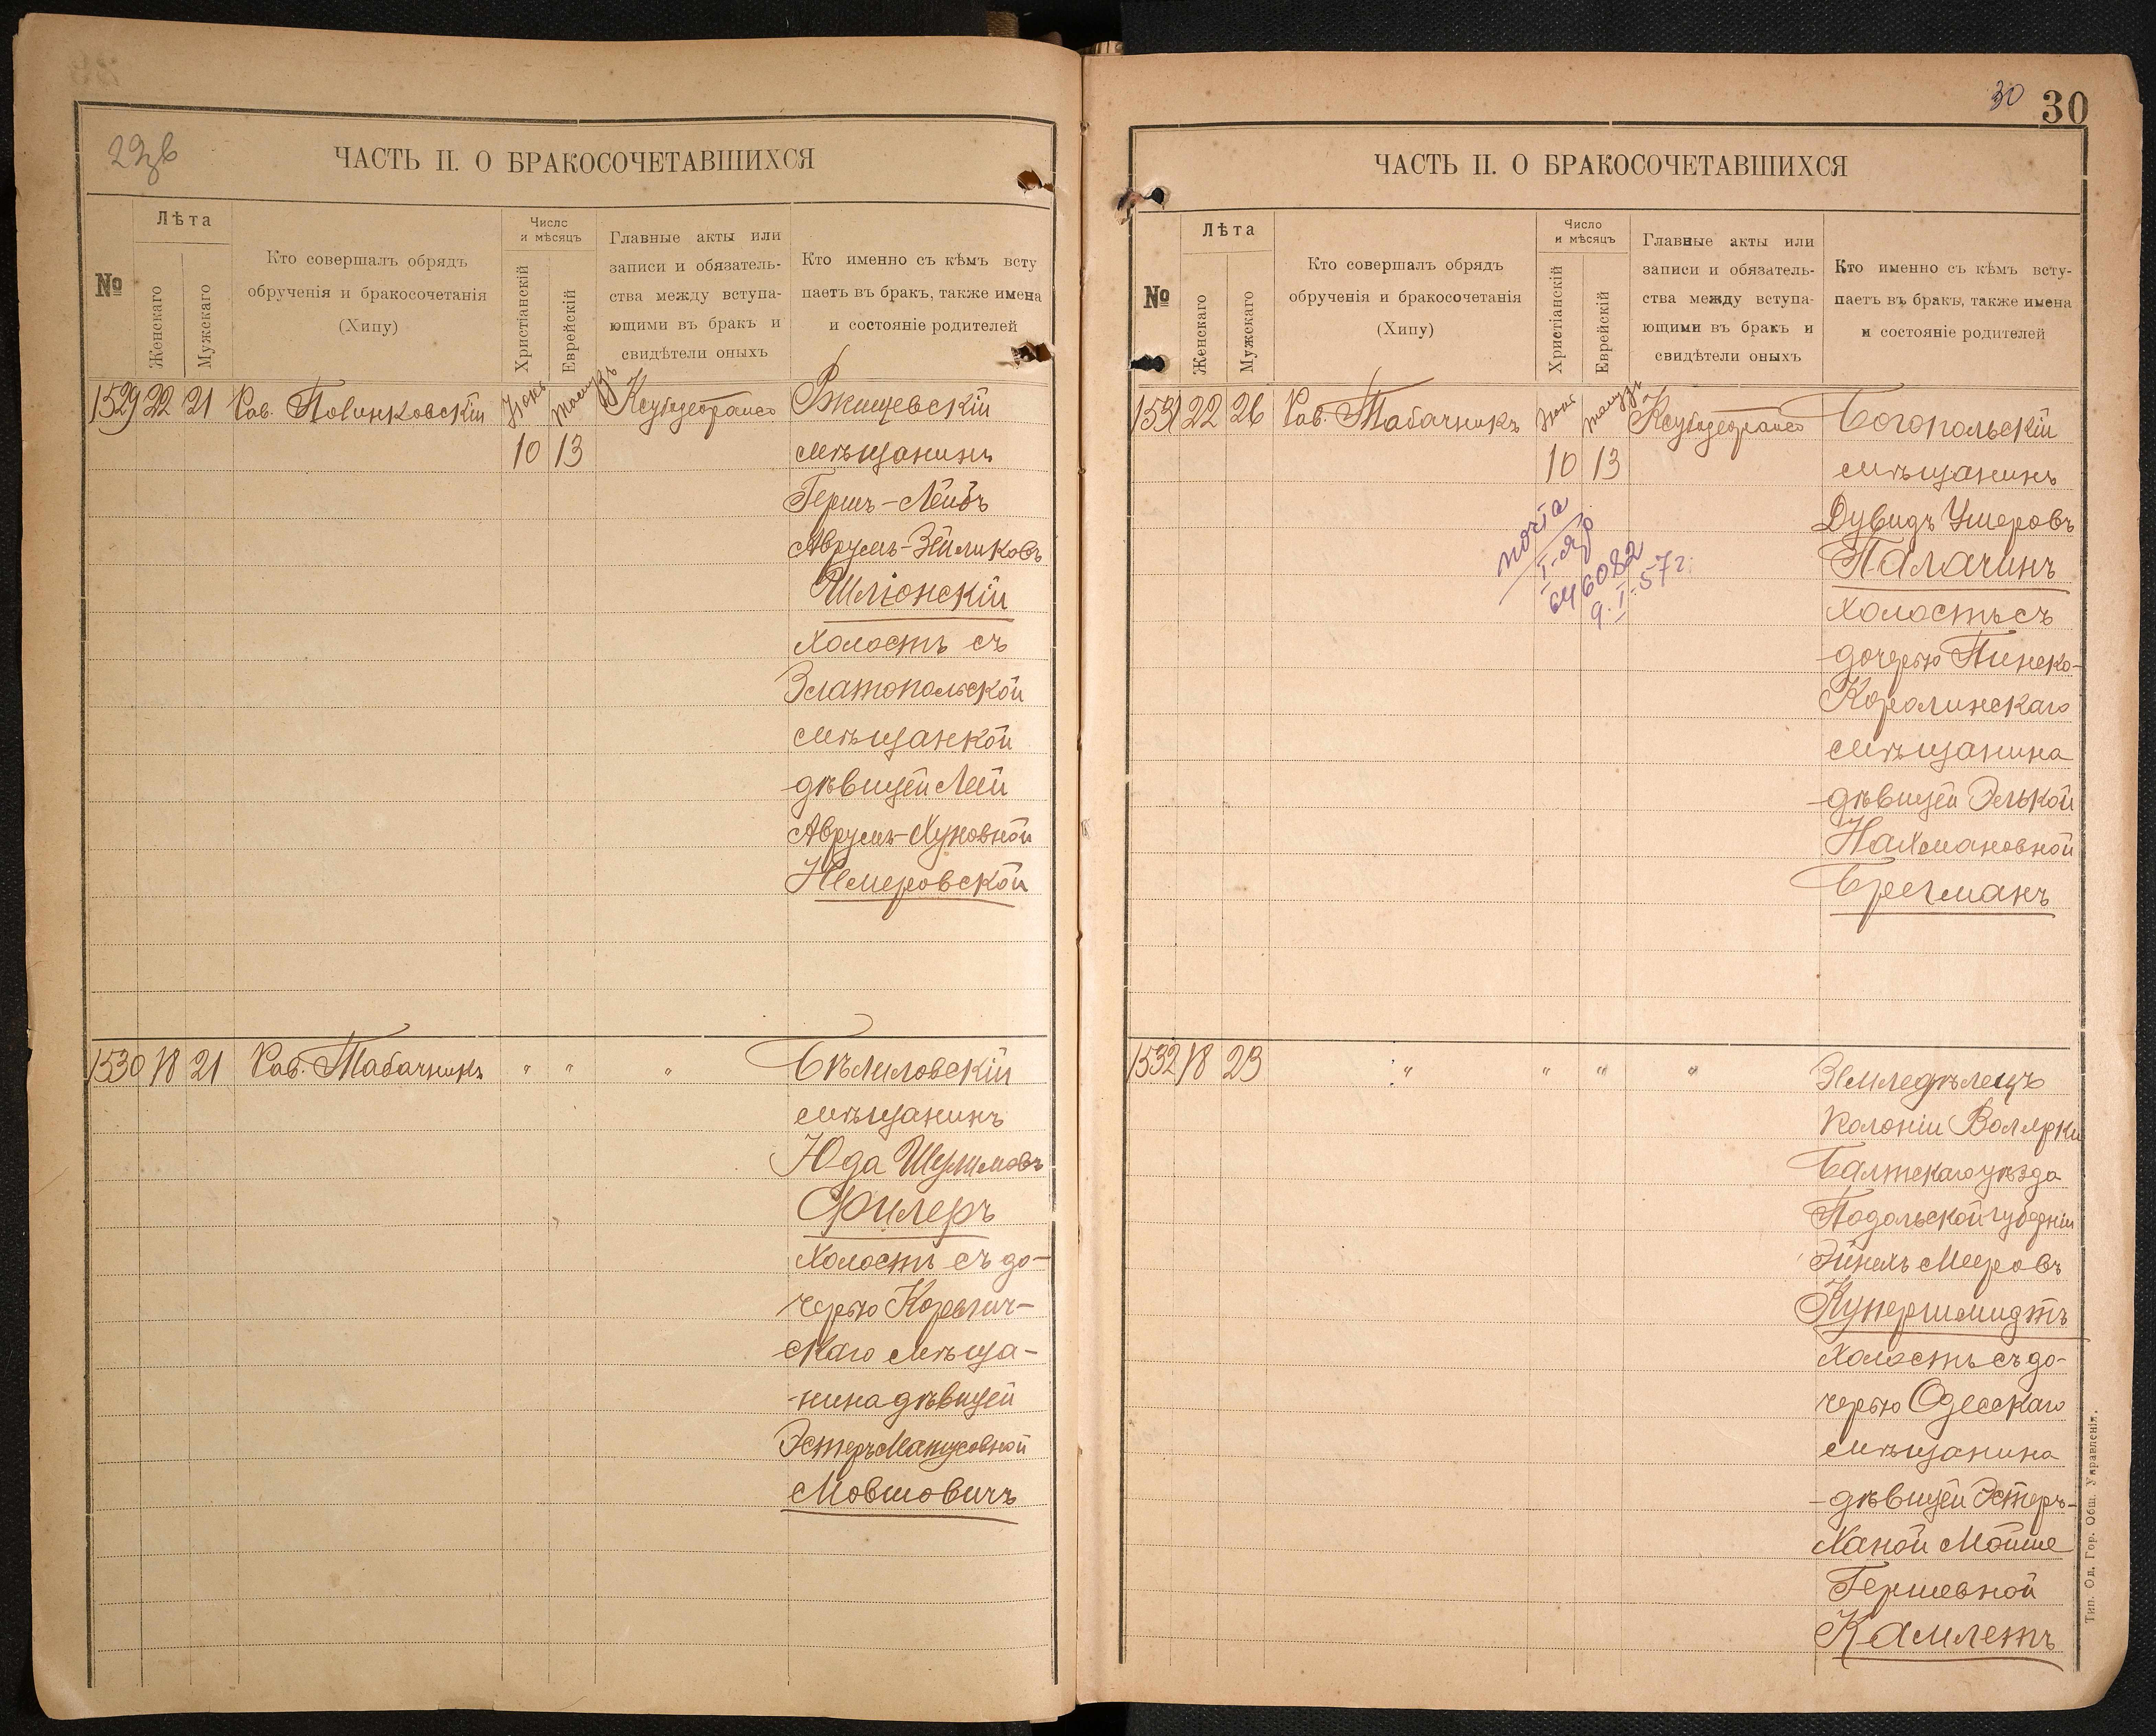 ЧАСТЬ II. О БРАКОСОЧЕТАВШИХСЯ
№
Лѣта
Женскаго
Мужскаго
Кто совершалъ обрядъ
обрученія и бракосочетанія
(Хипу)
Число
и мѣсяцъ
Христіанскій
Еврейскій
Главные акты или
записи и обязатель-
ства между вступа-
ющими въ бракъ и
свидѣтели оныхъ
Кто именно съ кѣмъ всту
паетъ въ бракъ, также имена
и состояніе родителей
1529 22 21 Рав.
10 13
Ржищевскій
мѣщанинъ
Гершъ-Лейбъ
Аврумъ-Зейликовъ
Шліонскій
холостъ съ
Златопольской
мѣщанкой
дѣвицей Леей
Аврумъ-Хуновной
Немеровской
1530 18 21 Рав. Табачникъ " " "
Бѣлиловскій
мѣщанинъ
Юда Шулимовъ
Филеръ
холостъ съ до-
черью
скаго мѣща-
нина дѣвицей
Эстеръ
Мовшовичъ
30
30
ЧАСТЬ II. О БРАКОСОЧЕТАВШИХСЯ
№
Лѣта
Женскаго
Мужскаго
Кто совершалъ обрядъ
обрученія и бракосочетанія
(Хипу)
Число
и мѣсяцъ
Христіанскій
Еврейскій
Главные акты или
записи и обязатель-
ства между вступа-
ющими въ бракъ и
свидѣтели оныхъ
Кто именно съ кѣмъ всту-
паетъ въ бракъ, также имена
и состояніе родителей
1531 22 26 Рав. Табачникъ
10 13
почта
646082
9.I.57г.
Богопольскій
мѣщанинъ
Дувидъ Умеровъ
Палачинъ
холостъ съ
дочерью Пинско-
Каролинскаго
мѣщанина
дѣвицей Элькой
Нахмановной
Брегманъ
1532 18 23 " " " "
Земледѣлецъ
колоніи Волярки
Балтскаго уѣзда
Подольской губерніи
Мееровъ
Купершмидтъ
холостъ съ до-
черью Одесскаго
мѣщанина
дѣвицей Эстеръ-
Ханой Мойше
Гершевной
Камлетъ
Тип. Од. Гор. Общ. Управленія.